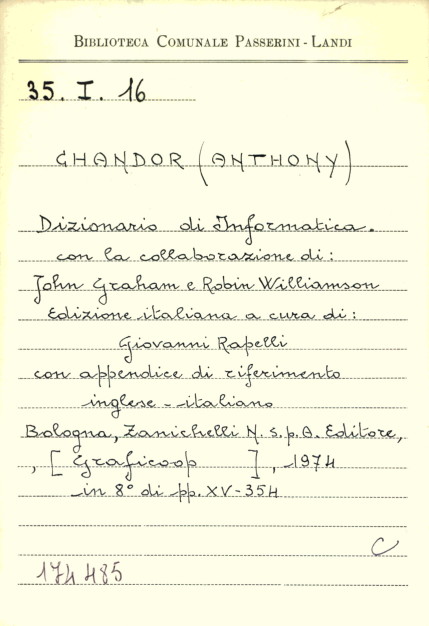 BIBLIOTECA COMUNALE PASSERINI - LANDI
35. I. 16
CHANDOR (ANTHONY)
Dizionario di Informatica.
con la collaborazione di:
John Graham e Robin Williamson
Edizione italiana a cura di:
Giovanni Rapelli
con appendice di riferimento
inglese - italiano
Bologna, Zanichelli N. S.p.A. Editore,
, [Graficoop ], 1974
in 8° di pp. XV-354
C
174485